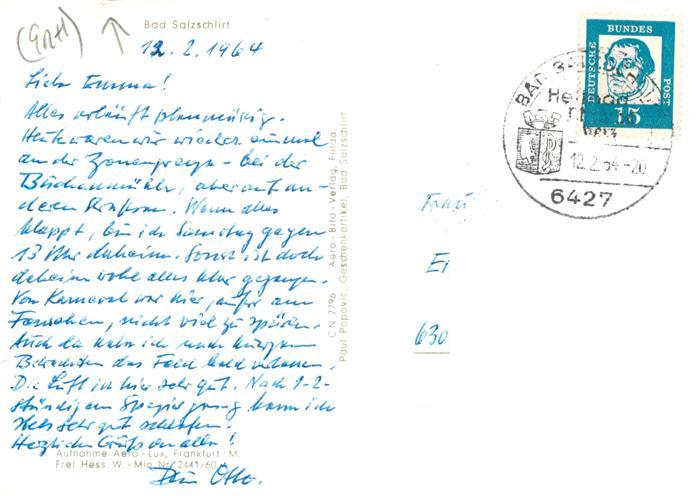 (9n+1)
Bad Salzschlirf
12.2.1964
Liebe Emma!
Alles verläuft planmäßig.
Heute waren wir wieder einmal
an der Zonengrenze - bei der
Buchenmühle, aber auf an-
deren Straßen. Wenn alles
klappt, bin ich Samstag gegen
13 Uhr daheim. Sonst ist doch
daheim wohl alles klar gegangen.
Von Karneval war hier, außer am
Fernsehen, nicht viel zu spüren.
Auch da habe ich nach kurzem
Betrachten das Feld bald verlassen.
Die Luft ist hier sehr gut. Nach 1-2-
stündigem Spaziergang kann ich
stets sehr gut schlafen.
Herzliche Grüße an alle!
Dein Otto.
Aufnahme Aero-Lux, Frankfurt/M.
Frei Hess. W.-Min Nr. 2441/60
CN 7796 Aero-Bild-Verlag, Fulda
Paul Popovic, Geschenkartikel, Bad Salzschlirf
Frau
Ei
630
DEUTSCHE
BUNDES
POST
15
BAD
12.2.64-20
6427